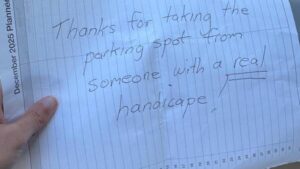 December 2025 Planner
Thanks for taking the
parking spot from
someone with a real
handicape,